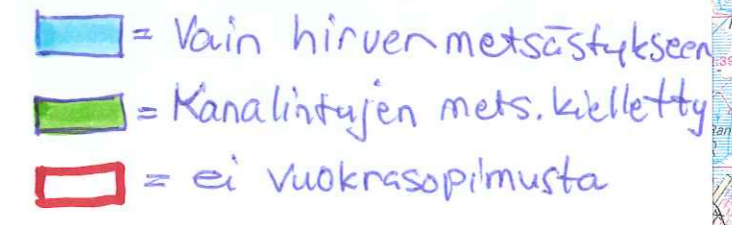 = Vain hirvenmetsästykseen
= Kanalintujen mets. kielletty
= ei vuokrasopimusta